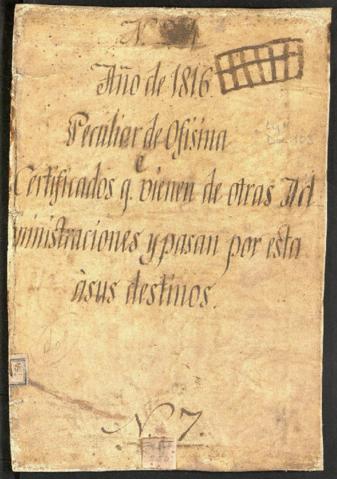 Año de 1816.
Peculiar de Ofisina
e
Certificados q. vienen de otras Ad
ministraciones y pasan por esta
àsus destinos.
N. 7.